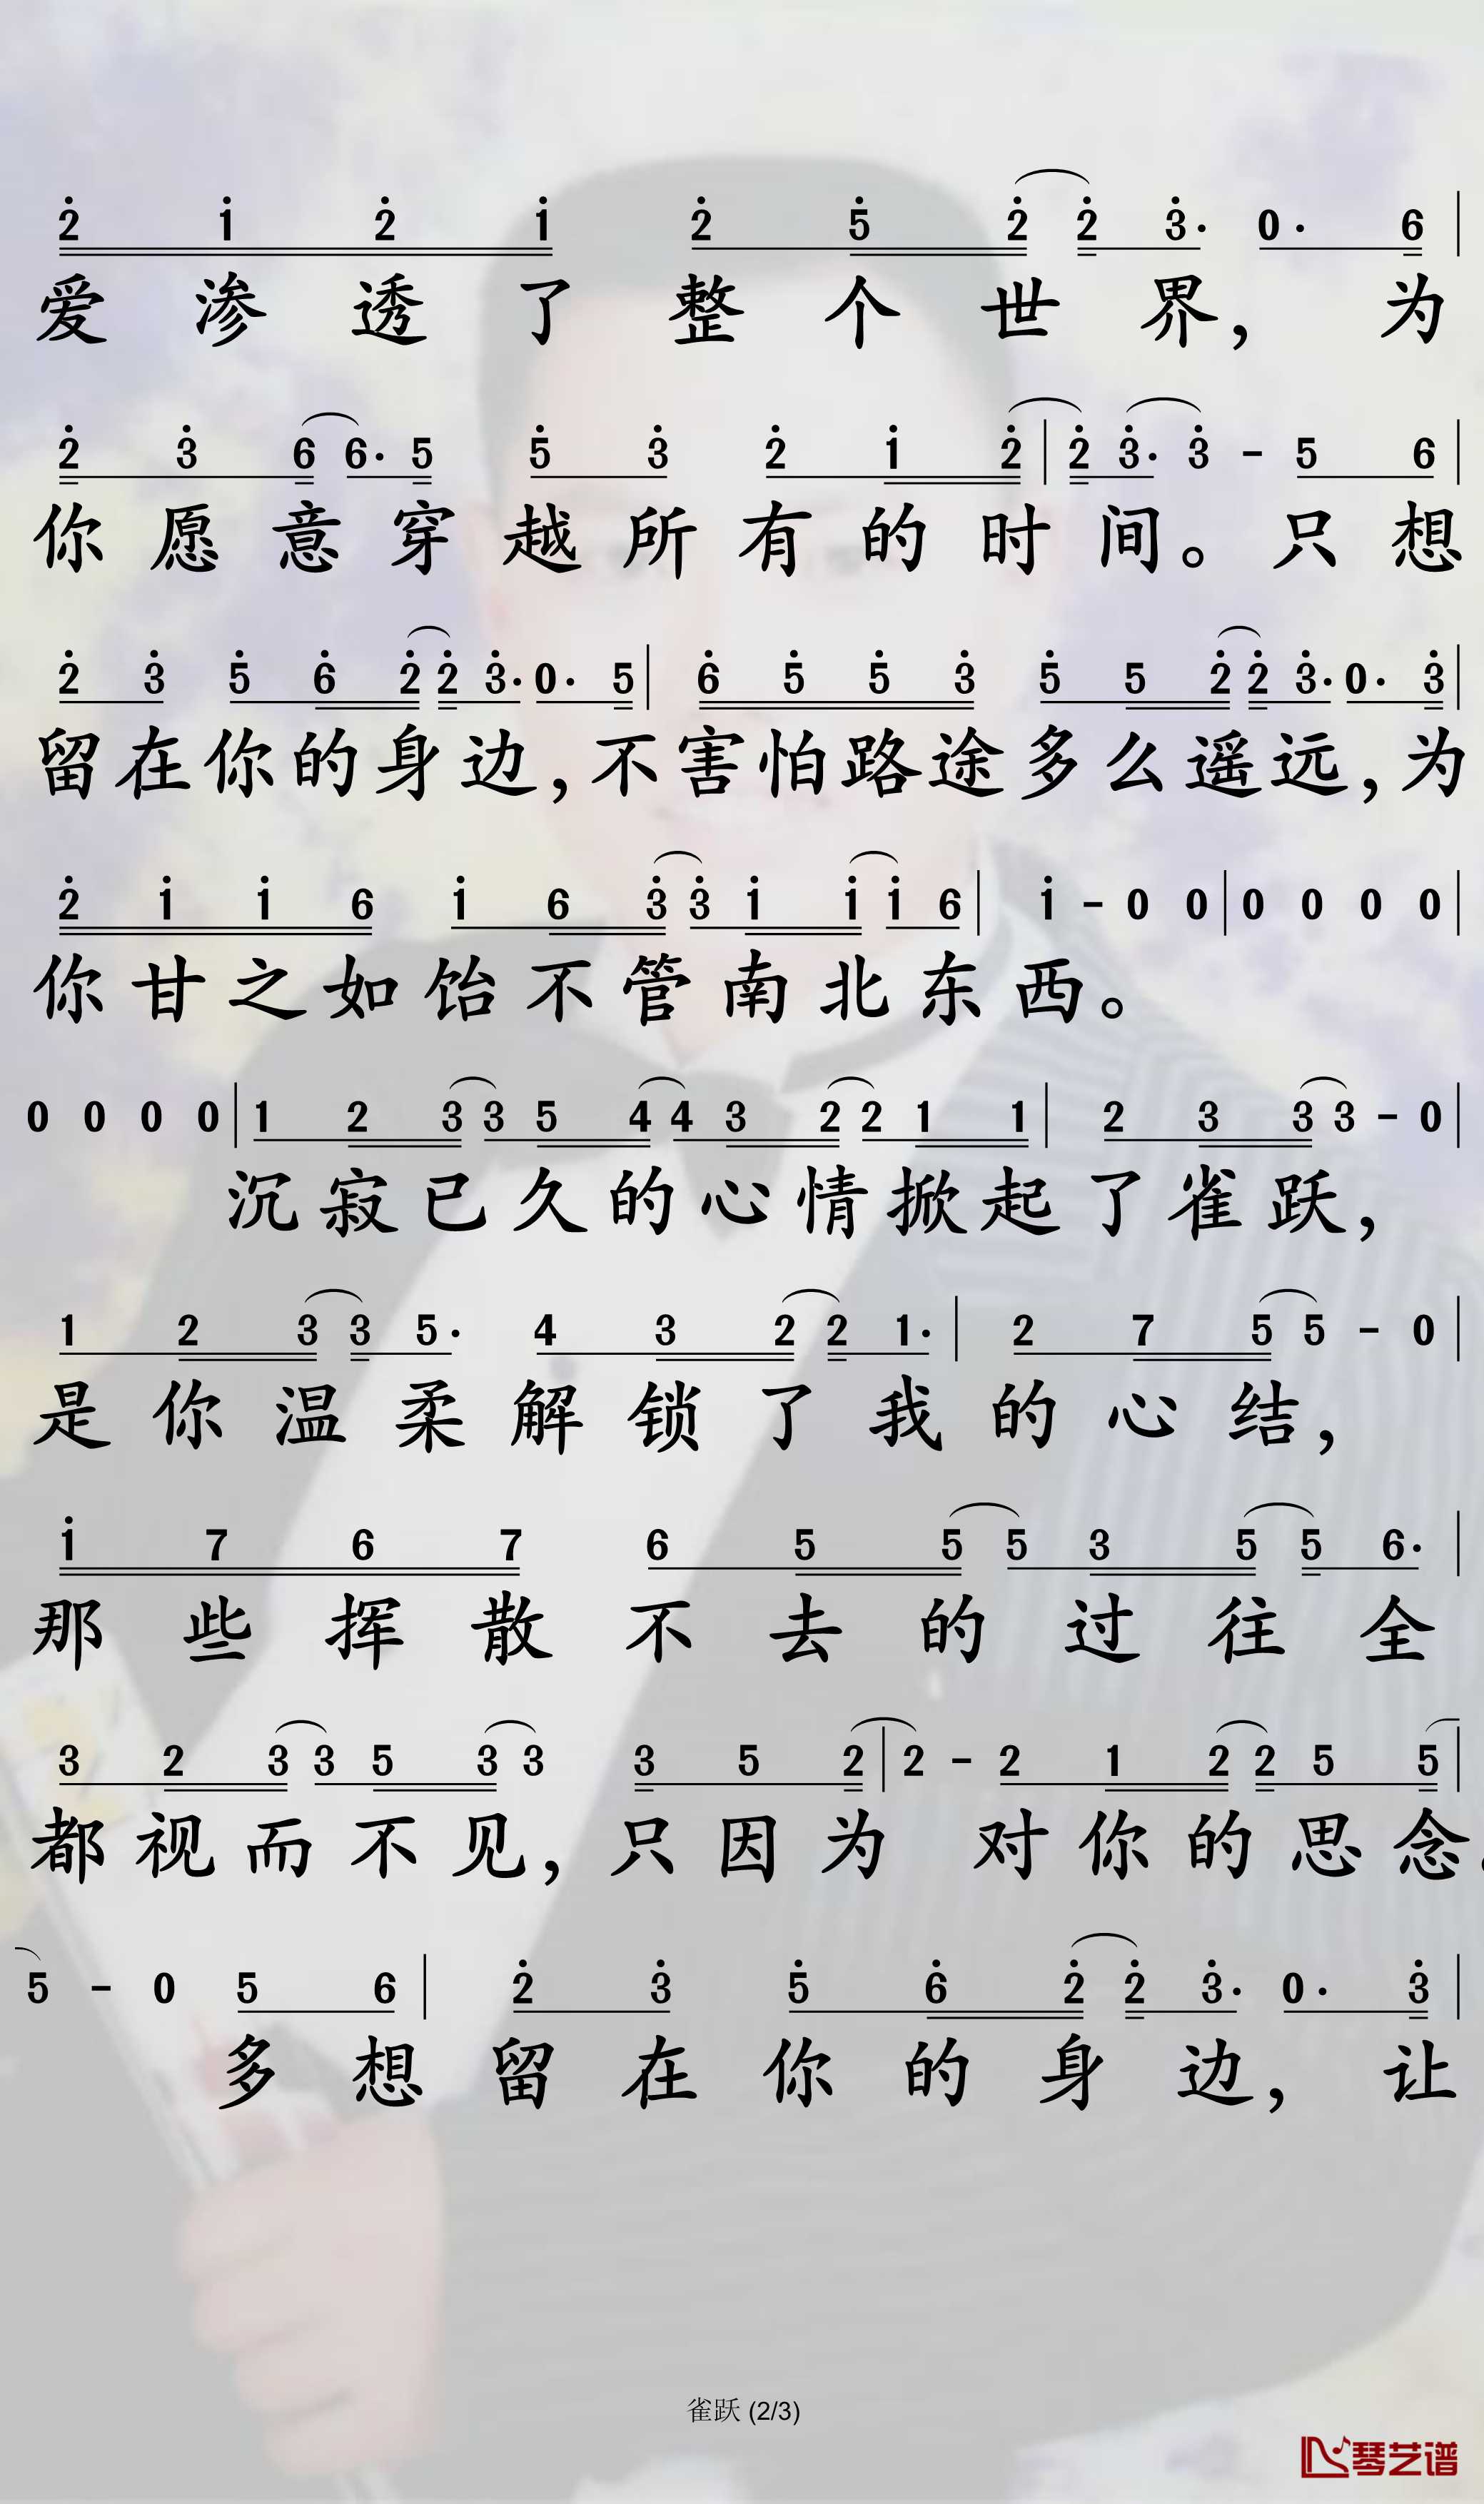 2̇ 1̇ 2̇ 1̇ 2̇ 5̇ 2̇ 2̇ 3̇· 0· 6 |
爱渗透了整个世界，为
2̇ 3̇ 6̇ 6̇· 5̇ 5̇ 3̇ 2̇ 1̇ 2̇ | 2̇ 3̇· 3̇ - 5 6 |
你愿意穿越所有的时间。只想
2̇ 3̇ 5̇ 6̇ 2̇ 2̇ 3̇· 0· 5 | 6̇ 5̇ 5̇ 3̇ 5̇ 5 2̇ 2̇ 3̇· 0· 3̇ |
留在你的身边，不害怕路途多么遥远，为
2̇ 1̇ 1̇ 6 1̇ 6 3̇ 3̇ 1̇ 1̇ 1̇ 6 | 1̇ - 0 0 | 0 0 0 0 |
你甘之如饴不管南北东西。
0 0 0 0 | 1 2 3 3 5 4 4 3 2 2 1 1 | 2 3 3 3 - 0 |
沉寂已久的心情掀起了雀跃，
1 2 3 3 5· 4 3 2 2 1· | 2 7 5 5 - 0 |
是你温柔解锁了我的心结，
1̇ 7 6 7 6 5 5 5 3 5 5 6· |
那些挥散不去的过往全
3 2 3 3 5 3 3 3 5 2 | 2 - 2 1 2 2 5 5 |
都视而不见，只因为 对你的思念
5 - 0 5 6 | 2̇ 3̇ 5̇ 6̇ 2̇ 2̇ 3̇· 0· 3̇ |
多想留在你的身边，让
雀跃 (2/3)
琴艺谱